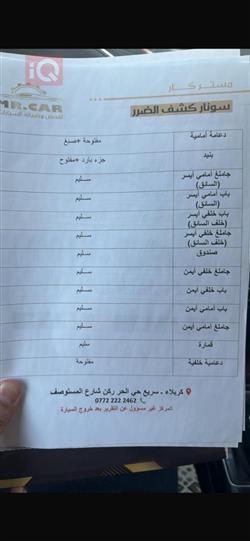 iQ
مستر كار
MR.CAR
سونار كشف الضرر
دعامة أمامية مفتوحة +صبغ
بنيد جزء بارد +مفتوح
جاملغ أمامي أيسر (السائق) سليم
باب أمامي أيسر (السائق) سليم
باب خلفي أيسر (خلف السائق) سليم
جاملغ خلفي أيسر (خلف السائق) سليم
صندوق سليم
جاملغ خلفي أيمن سليم
باب خلفي أيمن سليم
باب أمامي أيمن سليم
جاملغ أمامي أيمن سليم
قمارة سليم
دعامية خلفية مفتوحة
كربلاء - سريع حي الحر ركن شارع المستوصف
0772 222 2462
المركز غير مسؤول عن التقرير بعد خروج السيارة